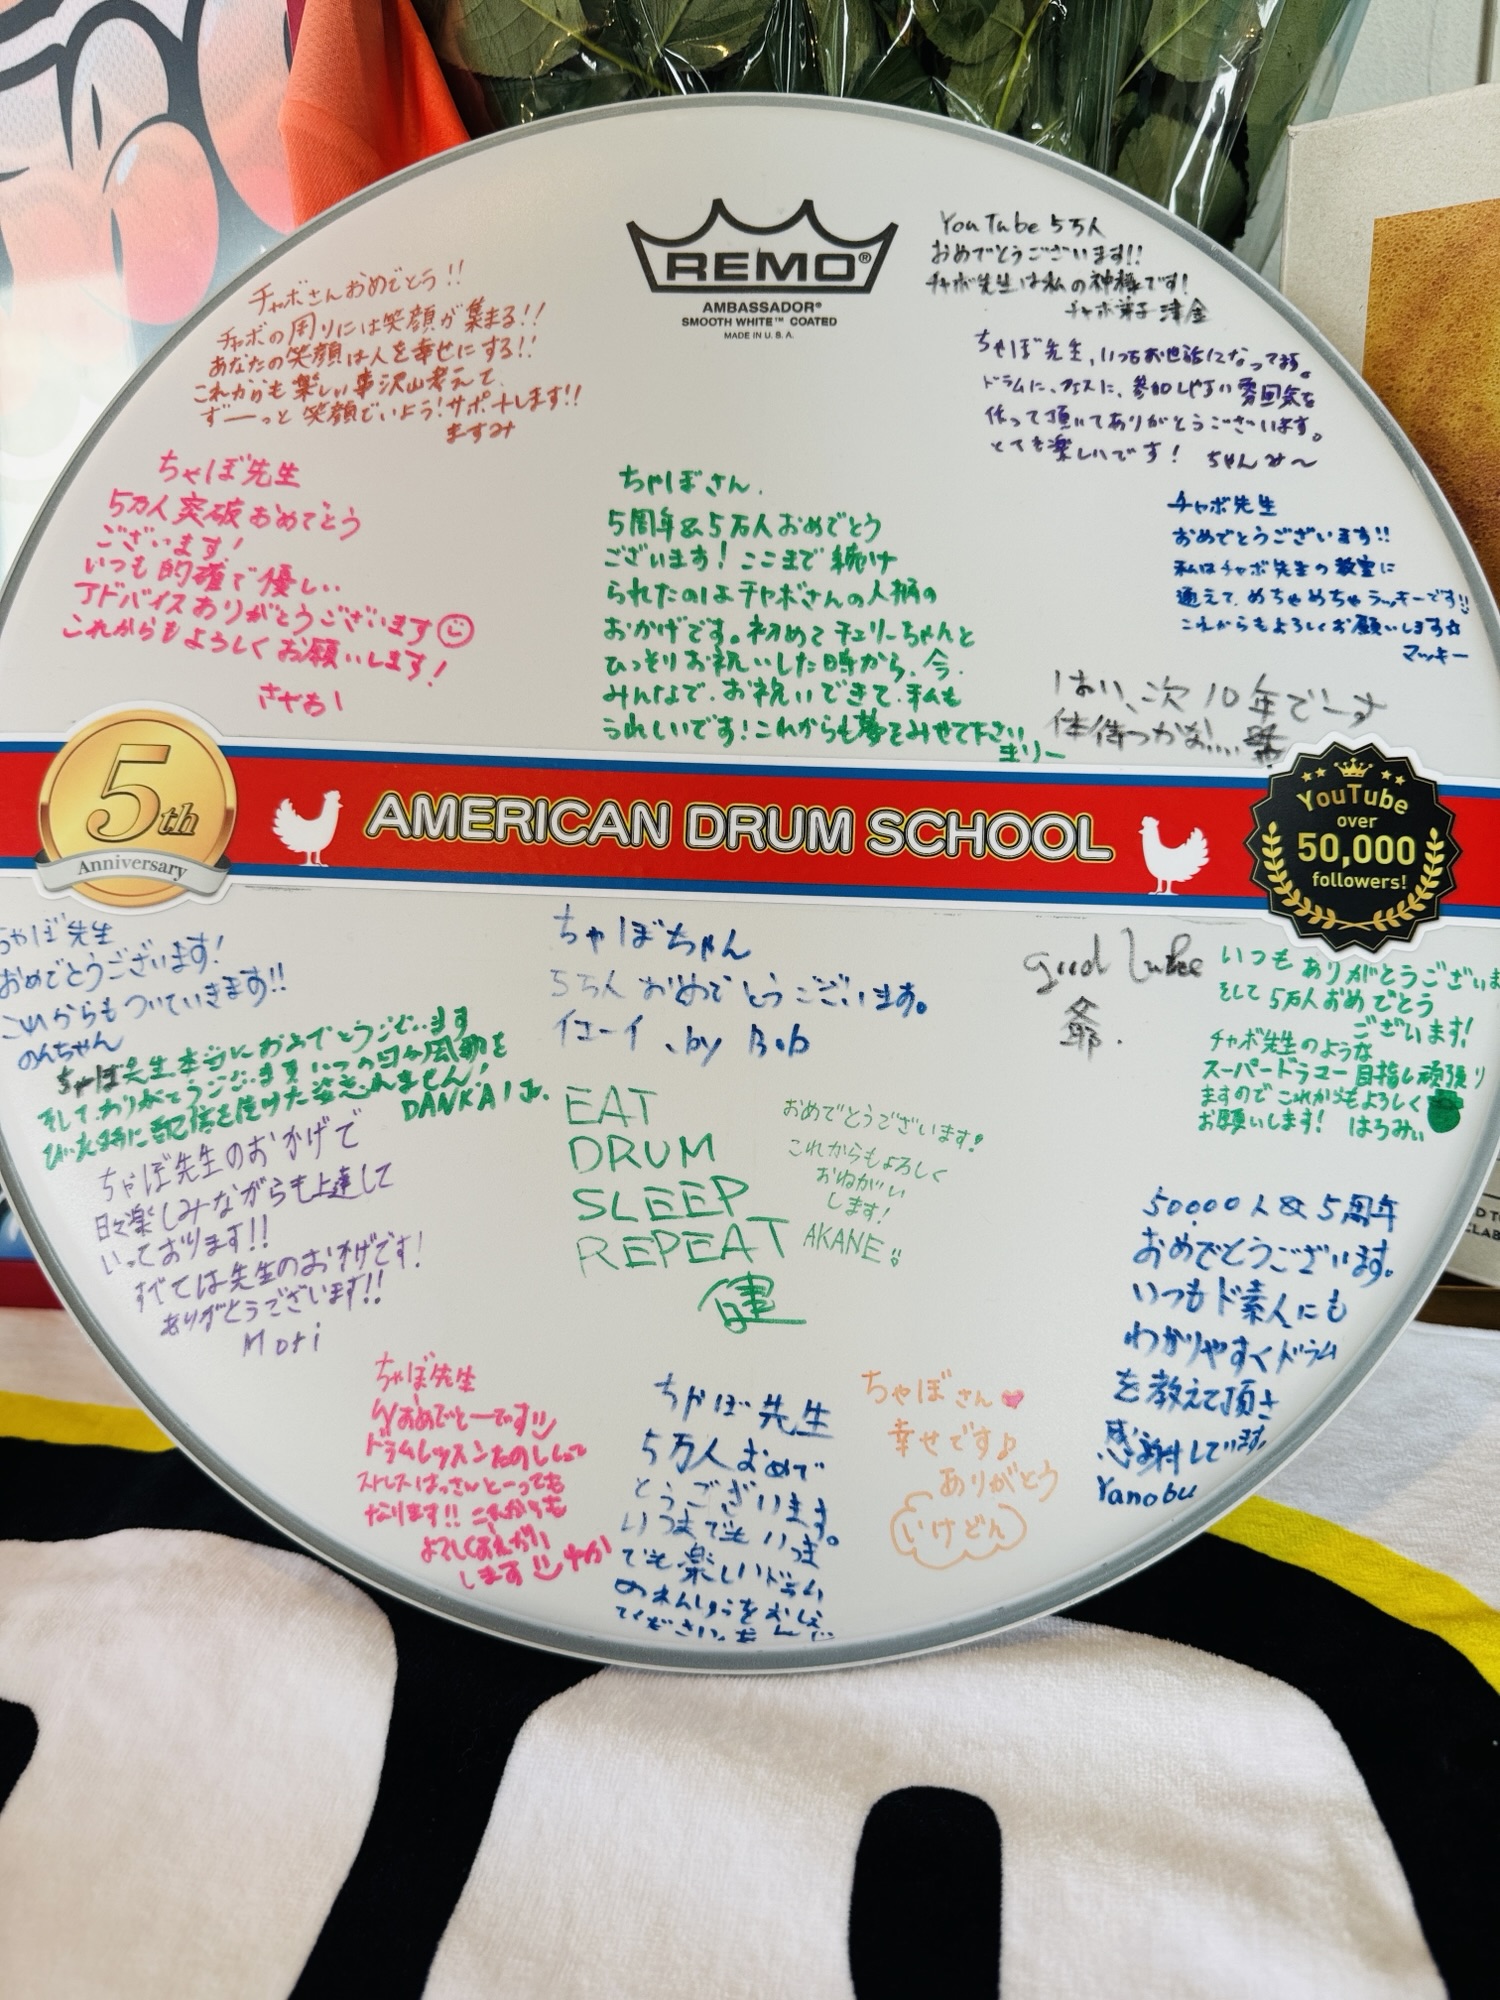 REMO®
AMBASSADOR®
SMOOTH WHITE™ COATED
MADE IN U.S.A.
チャボさんおめでとう!!
チャボの周りには笑顔が集まる!!
あなたの笑顔は人を幸せにする!!
これからも楽しい事沢山考えて、
ず――っと笑顔でいよう!サポートします!!
ますみ
YouTube 5万人
おめでとうございます!!
チャボ先生は私の神様です!
チャボ弟子 津金
ちゃぼ先生、いつもお世話になってます。
ドラムに、フェスに、参加しやすい雰囲気を
作って頂いてありがとうございます。
とても楽しいです! ちゃんみ〜
ちゃぼ先生
5万人突破おめでとう
ございます!
いつも的確で優しい
アドバイスありがとうございます☺
これからもよろしくお願いします!
ちゃぼさん.
5周年&5万人おめでとう
ございます!ここまで続け
られたのはチャボさんの人柄の
おかげです。初めてチェリーちゃんと
ひっそりお祝いした時から、今、
みんなで、お祝いできて、私も
うれしいです!これからも夢をみせて下さい
まリー
チャボ先生
おめでとうございます!!
私はチャボ先生の教室に
通えて、めちゃめちゃラッキーです!!
これからもよろしくお願いします☆
マッキー
はい、次10年でーす
5th
Anniversary
AMERICAN DRUM SCHOOL
YouTube
over
50,000
followers!
ちゃぼ先生
おめでとうございます!
これからもついていきます!!
のんちゃん
ちゃぼ先生本当におめでとうございます
そしてありがとうございます
DANKAI Jr.
ちゃぼちゃん
5万人おめでとうございます。
イエーイ、by Bob
good
爺.
いつもありがとうございま
そして5万人おめでとう
ございます!
チャボ先生のような
スーパードラマー目指し頑張り
ますのでこれからもよろしく
お願いします! はろみぃ
ちゃぼ先生のおかげで
日々楽しみながらも上達して
いっております!!
すべては先生のおかげです!
ありがとうございます!!
Mori
EAT
DRUM
SLEEP
REPEAT
健
おめでとうございます!
これからもよろしく
おねがい
します!
AKANE
50000人&5周年
おめでとうございます。
いつもド素人にも
わかりやすくドラム
を教えて頂き
感謝しています。
Yanobu
ちゃぼ先生
おめでとーです
ドラムレッスンたのしくて
ストレスはっさんとーっても
なります!! これからも
よろしくおねがい
します
ちゃぼ先生
5万人おめで
とうございます。
いつまでもいつま
でも楽しいドラム
ちゃぼさん♥
幸せです♪
ありがとう
いけどん